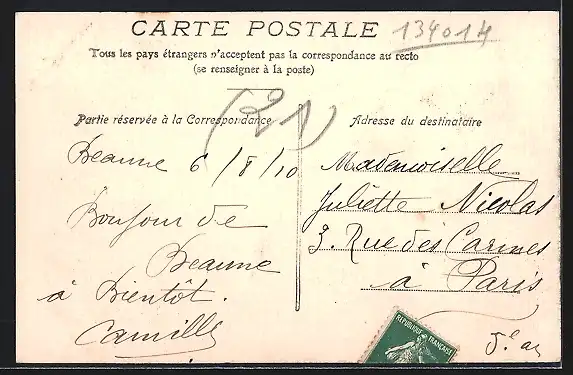 CARTE POSTALE
134014
Tous les pays étrangers n'acceptent pas la correspondance au recto
(se renseigner à la poste)
(21)
Partie réservée à la Correspondance
Adresse du destinataire
Beaune 6/8/10
Bonjour de
Beaune
à Bientôt.
Camille
Mademoiselle
Juliette Nicolas
3. Rue des Carmes
à Paris
5e ar
RÉPUBLIQUE FRANÇAISE